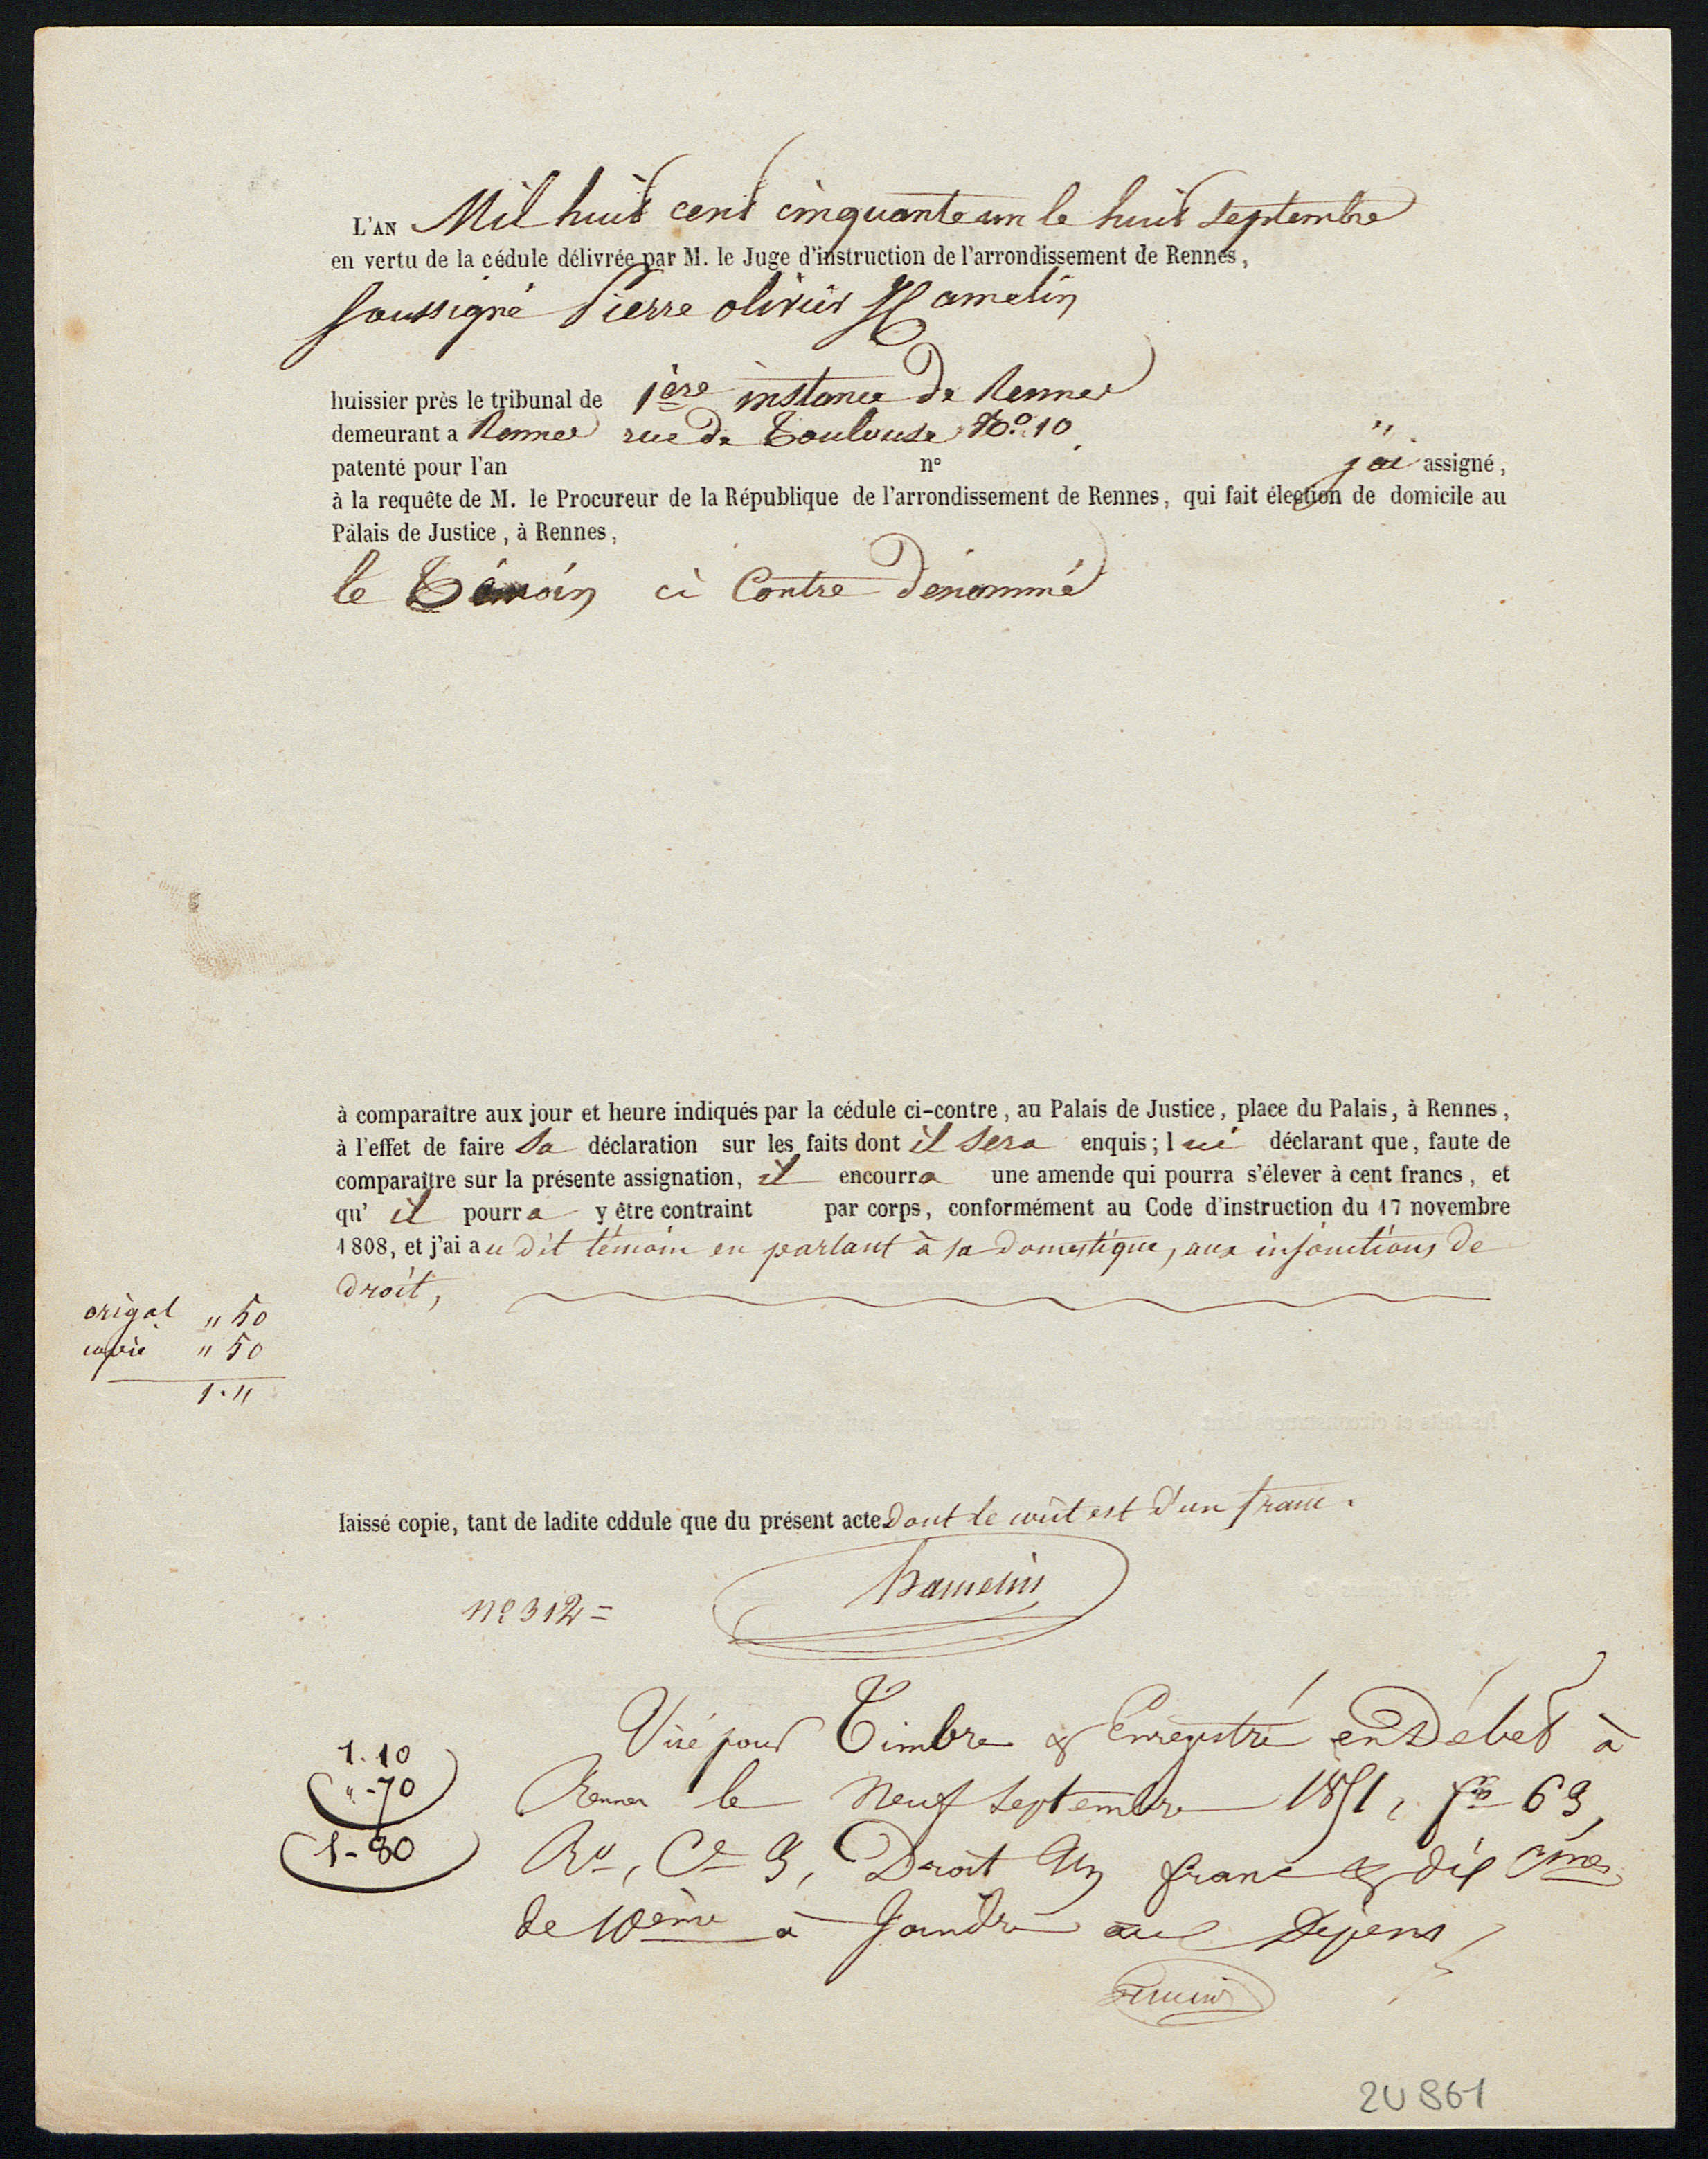 L'AN Mil huit cent cinquante un le huit septembre
en vertu de la cédule délivrée par M. le Juge d'instruction de l'arrondissement de Rennes,
soussigné Pierre olivier Hamelin
huissier près le tribunal de 1ère instance de Rennes
demeurant a Rennes rue de Toulouse No. 10 "
patenté pour l'an n° j'ai assigné,
à la requête de M. le Procureur de la République de l'arrondissement de Rennes, qui fait élection de domicile au
Palais de Justice, à Rennes,
le Témoin ci Contre dénommé
à comparaître aux jour et heure indiqués par la cédule ci-contre, au Palais de Justice, place du Palais, à Rennes,
à l'effet de faire sa déclaration sur les faits dont il sera enquis; lui déclarant que, faute de
comparaître sur la présente assignation, il encourra une amende qui pourra s'élever à cent francs, et
qu' il pourra y être contraint par corps, conformément au Code d'instruction du 17 novembre
1808, et j'ai au dit témoin en parlant à sa domestique, aux injonctions de
droit,
origal " 50
copie " 50
1. "
laissé copie, tant de ladite cddule que du présent acte dont le coût est d'un franc.
hamelin
No 312 =
Visé pour Timbre & Enregistré en Débet à
Rennes le Neuf septembre 1851, fo 69,
Ro, Ce 9, Droit Un franc & dix cmes
de 10ème à Joindre aux Dépens
1. 10
" - 70
1 - 80
2U 861